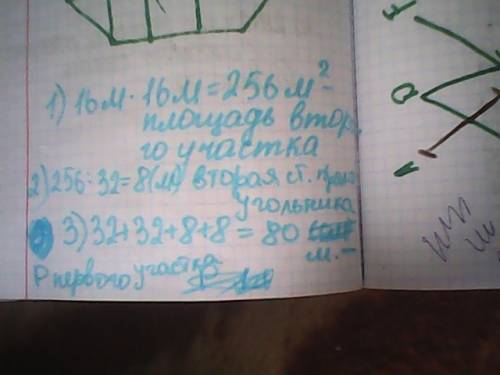 1) 16м · 16м = 256 м² -
площадь втор
го участка
2) 256 : 32 = 8(м) вторая ст. прям
угольника
3) 32+32+8+8 = 80
м. -
P первого участка